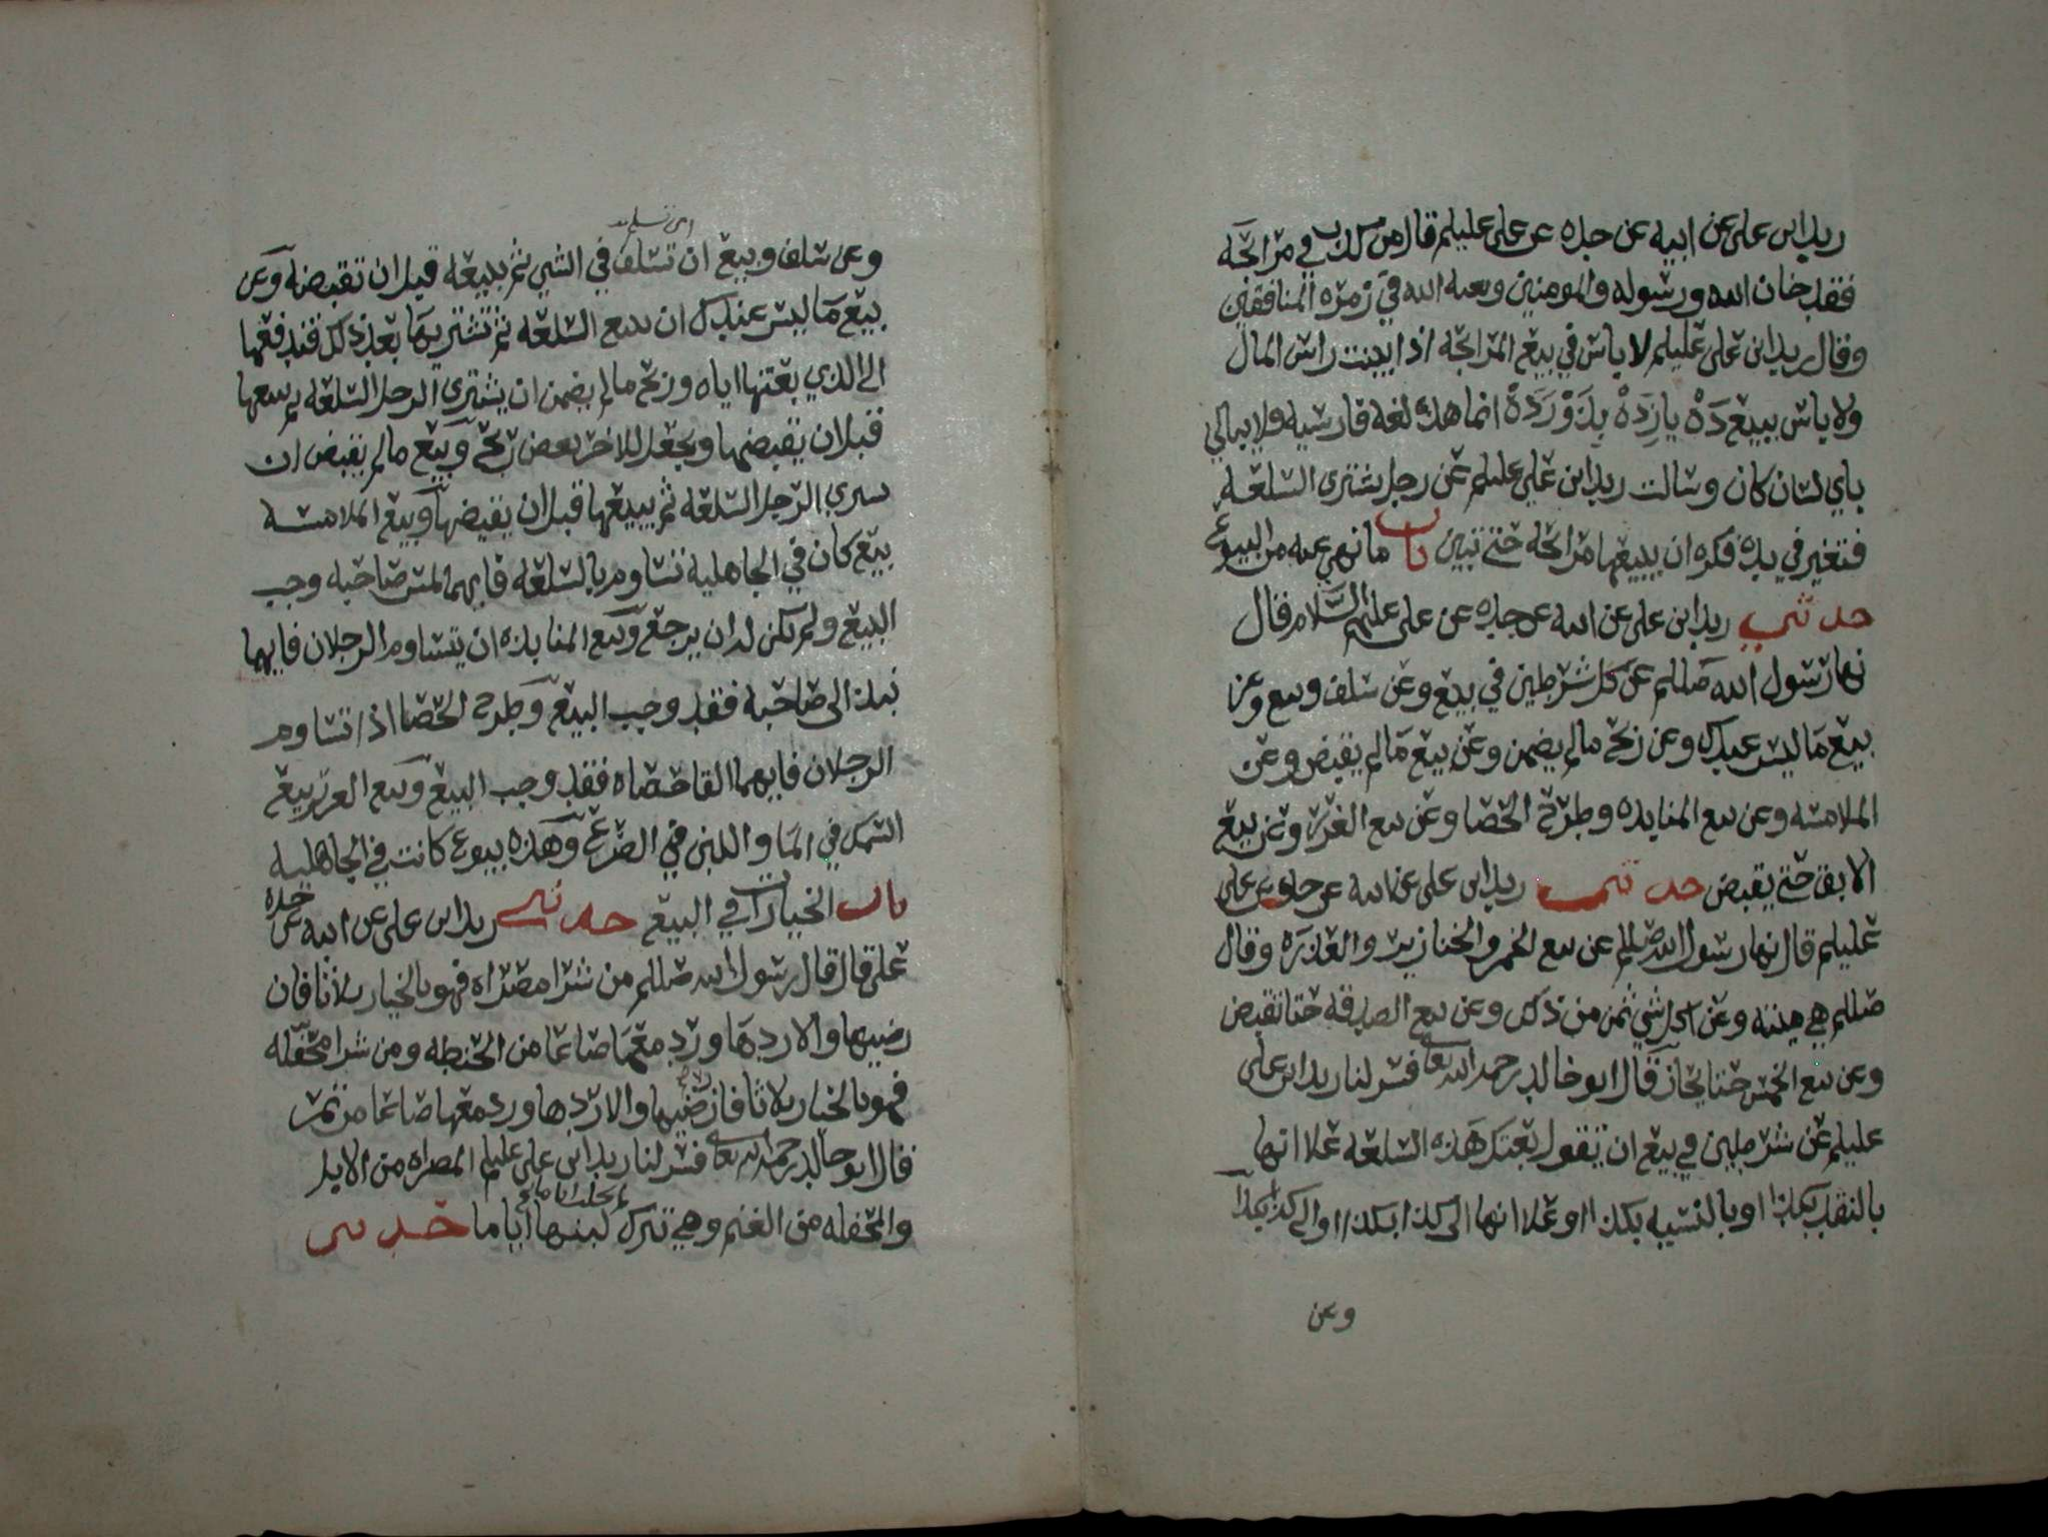 زيد ابن على عن ابيه عن جده عن على عليلم قال من كذب في مرابحه
فقد خان الله ورسوله والمومنين وبعثه الله في زمره المنافقين
وقال زيد ابن على عليلم لا باس في بيع المرابحه اذا بينت راس المال
ولا باس ببيع ده يازده بده دوازده انما هذه لغه فارسيه فلا يبالي
باي لسان كان وسالت زيد ابن علي عليلم عن رجل يشترى السلعه
فتتغير في يده فكره ان يبيعها مرابحه حتى تبين باب ما نهي عنه من البيوع
حدثني زيد ابن على عن ابيه عن جده عن على عليهم السلام قال
نها رسول الله صللم عن كل شرطين في بيع وعن سلف وبيع وعن
بيع ما ليس عندك وعن ربح ما لم يضمن وعن بيع ما لم يقبض وعن
الملامسه وعن بيع المنابذه وطرح الحصا وعن بيع الغرر وعن بيع
الابق حتى يقبض حدثني زيد ابن على عن ابيه عن جده عن على
عليلم قال نها رسول الله صللم عن بيع الخمر والخنازير والعذره وقال
صللم هي ميته وعن اكل شي ثمن من ذلك وعن بيع الصدقه حتا تقبض
وعن بيع الخمس حتا يحاز قال ابو خالد رحمه الله تعالى فسر لنا زيد ابن على
عليلم عن شرطين في بيع ان تقول بعتك هذه السلعه علا انها
بالنقد بكذا او بالنسيه بكذا او علا انها الى كذا بكذا او الى كذا بكذا
وعن
وعن سلف وبيع ان تسلف في الشي ثم يبيعه قبل ان تقبضه وعن
بيع ما ليس عندك ان تبيع السلعه ثم تشتريها بعد ذلك فتدفعها
الى الذي بعتها اياه وربح ما لم يضمن ان يشترى الرجل السلعه ثم يبيعها
قبل ان يقبضها ويجعل للاخر بعض ربحه وبيع ما لم يقبض ان
يشتري الرجل السلعه ثم يبيعها قبل ان يقبضها وبيع الملامسه
بيع كان في الجاهليه تتساوم بالسلعه فايهما لمس صاحبه وجب
البيع ولم يكن له ان يرجع وبيع المنابذه ان يتساوم الرجلان فايهما
نبذ الى صاحبه فقد وجب البيع وطرح الحصا اذا تساوم
الرجلان فايهما القا حصاه فقد وجب البيع وبيع الغرر بيع
السمك في الما واللبن في الضرع وهذه بيوع كانت في الجاهليه
باب الخيارات في البيع حدثني زيد ابن على عن ابيه عن جده
على قال قال رسول الله صللم من شرا مصراه فهو بالخيار ثلاثا فان
رضيها والا ردها ورد معها صاعا من الحنطه ومن شرا محفله
فهو بالخيار ثلاثا فان رضيها والا ردها ورد معها صاعا من تمر
قال ابو خالد رحمه الله تعالى فسر لنا زيد ابن على عليلم المصراه من الابل
والمحفله من الغنم وهي تترك لبنها اياما حدثني